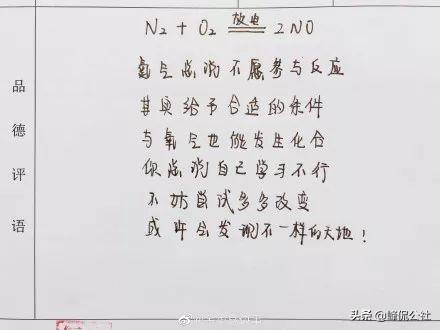 N₂ + O₂ 放电 2NO
氮气总说不愿参与反应
其实给予合适的条件
与氧气也能发生化合
你总说自己学习不行
不妨尝试多多改变
或许会发现不一样的天地！
品德评语
头条@峰侃公社